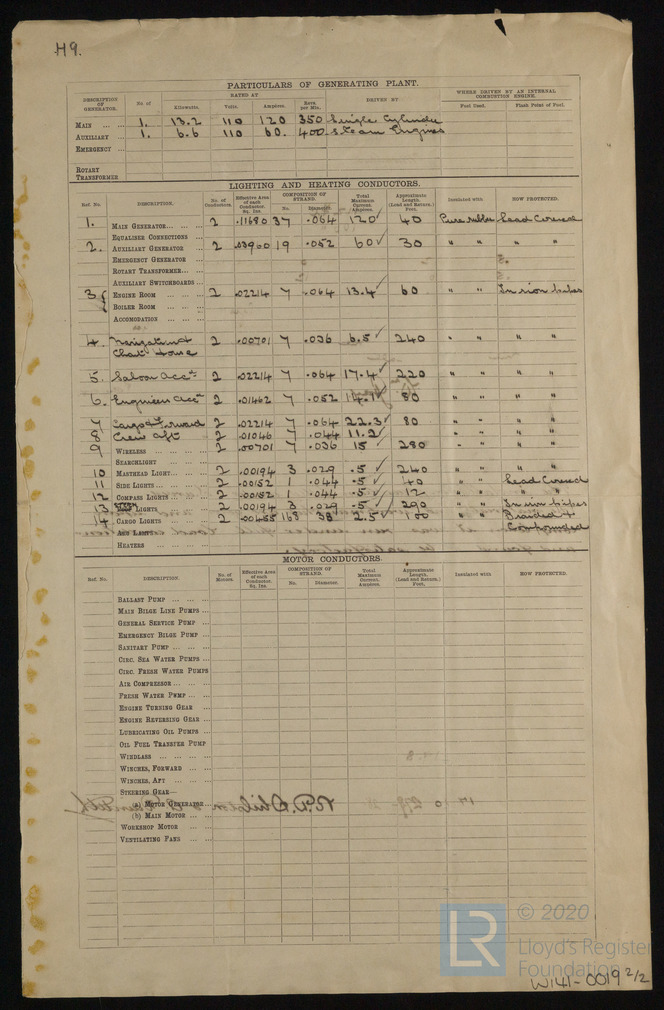 H9.
PARTICULARS OF GENERATING PLANT.
DESCRIPTION OF GENERATOR. No. of RATED AT Kilowatts. Volts. Ampères. Revs. per Min. DRIVEN BY WHERE DRIVEN BY AN INTERNAL COMBUSTION ENGINE. Fuel Used. Flash Point of Fuel.
MAIN ... ... 1. 13.2 110 120 350 Single Cylinder
AUXILIARY ... 1. 6.6 110 60. 400 Steam Engines
EMERGENCY ...
ROTARY TRANSFORMER
LIGHTING AND HEATING CONDUCTORS.
Ref. No. DESCRIPTION. No. of Conductors. Effective Area of each Conductor. Sq. Ins. COMPOSITION OF STRAND. No. Diameter. Total Maximum Current. Ampères. Approximate Length. (Lead and Return.) Feet. Insulated with HOW PROTECTED.
1. MAIN GENERATOR... ... ... 2 .11680 37 .064 120 ✓ 40 Pure rubber Lead Covered
EQUALISER CONNECTIONS ... ...
2. AUXILIARY GENERATOR ... 2 .03960 19 .052 60 ✓ 30 " " " "
EMERGENCY GENERATOR ...
ROTARY TRANSFORMER... ...
AUXILIARY SWITCHBOARDS ...
3 { ENGINE ROOM ... ... ... 2 .02214 7 .064 13.4 ✓ 60 " " In iron pipes
BOILER ROOM ... ... ...
ACCOMODATION ... ...
4. Navigation & Chart House 2 .00701 7 .036 6.5 ✓ 240 " " " "
5. Saloon acct 2 .02214 7 .064 17.4 ✓ 220 " " " "
6. Engineers acct 2 .01462 7 .052 14.1 ✓ 80 " " " "
7 Cargo Forward 2 .02214 7 .064 22.3 ✓ 80 " " " "
8 Crew aft 2 .01046 7 .044 11.2 ✓
9 WIRELESS ... ... ... 2 .00701 7 .036 15 ✓ 280 " " " "
SEARCHLIGHT ... ... ...
10 MASTHEAD LIGHT... ... ... 2 .00194 3 .029 .5 ✓ 240 " " " "
11 SIDE LIGHTS ... ... ... 2 .00152 1 .044 .5 ✓ 40 " " Lead Covered
12 COMPASS LIGHTS ... ... 2 .00152 1 .044 .5 ✓ 12 " " " "
13 LIGHTS ... ... 2 .00194 3 .029 .5 ✓ 290 " " In iron pipes
14 CARGO LIGHTS ... ... 2 .00455 168 38 2.5 ✓ 100 " " Braided & Compounded
ARC LAMPS ... ... ...
HEATERS ... ... ...
MOTOR CONDUCTORS.
Ref. No. DESCRIPTION. No. of Motors. Effective Area of each Conductor. Sq. Ins. COMPOSITION OF STRAND. No. Diameter. Total Maximum Current. Ampères. Approximate Length. (Lead and Return.) Feet. Insulated with HOW PROTECTED.
BALLAST PUMP ... ... ...
MAIN BILGE LINE PUMPS ...
GENERAL SERVICE PUMP ...
EMERGENCY BILGE PUMP ...
SANITARY PUMP ... ... ...
CIRC. SEA WATER PUMPS ...
CIRC. FRESH WATER PUMPS
AIR COMPRESSOR ... ... ...
FRESH WATER PUMP... ...
ENGINE TURNING GEAR ...
ENGINE REVERSING GEAR ...
LUBRICATING OIL PUMPS ...
OIL FUEL TRANSFER PUMP
WINDLASS ... ... ...
WINCHES, FORWARD ... ...
WINCHES, AFT ... ... ...
STEERING GEAR—
(a) MOTOR GENERATOR ...
(b) MAIN MOTOR ... ...
WORKSHOP MOTOR ... ...
VENTILATING FANS ... ...
LR
© 2020
Lloyd's Register
Foundation
W141-0019 2/2